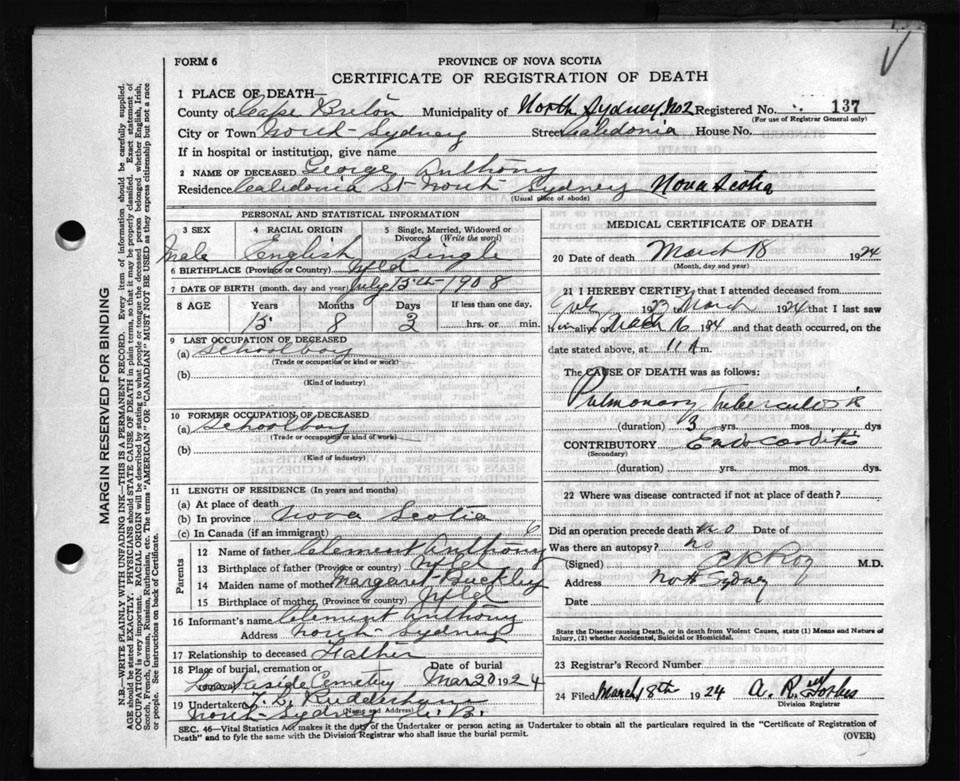 FORM 6
PROVINCE OF NOVA SCOTIA
CERTIFICATE OF REGISTRATION OF DEATH
1 PLACE OF DEATH—
County of Cape Breton Municipality of North Sydney, No2 Registered No. 137
(For use of Registrar General only)
City or Town North Sydney Street Caledonia House No.
If in hospital or institution, give name
2 NAME OF DECEASED George Anthony
Residence Caledonia St North Sydney Nova Scotia
(Usual place of abode)
PERSONAL AND STATISTICAL INFORMATION
3 SEX 4 RACIAL ORIGIN 5 Single, Married, Widowed or Divorced (Write the word)
Male English Single
6 BIRTHPLACE (Province or Country) Nfld
7 DATE OF BIRTH (month, day and year) July 15th 1908
8 AGE Years Months Days If less than one day,
15 8 3 hrs. or min.
9 LAST OCCUPATION OF DECEASED
(a) Schoolboy
(Trade or occupation or kind of work)
(b)
(Kind of industry)
10 FORMER OCCUPATION OF DECEASED
(a) Schoolboy
(Trade or occupation or kind of work)
(b)
(Kind of industry)
11 LENGTH OF RESIDENCE (In years and months)
(a) At place of death
(b) In province Nova Scotia
(c) In Canada (if an immigrant) 6
Parents
12 Name of father Clement Anthony
13 Birthplace of father (Province or country) Nfld
14 Maiden name of mother Margaret Buckley
15 Birthplace of mother (Province or country) Nfld
16 Informant's name Clement Anthony
Address North Sydney
17 Relationship to deceased Father
18 Place of burial, cremation or removal Date of burial
Lakeside Cemetery Mar 20 1924
19 Undertaker
(Name and Address)
North Sydney C.B.
MEDICAL CERTIFICATE OF DEATH
20 Date of death March 18 1924
(Month, day and year)
21 I HEREBY CERTIFY that I attended deceased from
1923 March 1924 that I last saw
him alive on March 16 1924 and that death occurred, on the
date stated above, at 11 A m.
The CAUSE OF DEATH was as follows:
Pulmonary Tuberculosis
(duration) 3 yrs. mos. dys
CONTRIBUTORY Endocarditis
(Secondary)
(duration) yrs. mos. dys.
22 Where was disease contracted if not at place of death?
Did an operation precede death no Date of
Was there an autopsy? no
(Signed) Roy M.D.
Address North Sydney
Date
State the Disease causing Death, or in Death from Violent Causes, state (1) Means and Nature of
Injury, (2) whether Accidental, Suicidal or Homicidal.
23 Registrar's Record Number
24 Filed March 18th 1924 A. R. Forbes
Division Registrar
SEC. 46—Vital Statistics Act makes it the duty of the Undertaker or person acting as Undertaker to obtain all the particulars required in the "Certificate of Registration of
Death" and to fyle the same with the Division Registrar who shall issue the burial permit.
(OVER)
MARGIN RESERVED FOR BINDING
N.B.—WRITE PLAINLY WITH UNFADING INK—THIS IS A PERMANENT RECORD. Every item of information should be carefully supplied.
AGE should be stated EXACTLY. PHYSICIANS should STATE CAUSE OF DEATH in plain terms, so that it may be properly classified. Exact statement of
OCCUPATION is very important. RACIAL ORIGIN will be described by stating to what people or tongue the deceased person belonged, whether English, Irish,
Scotch, French, German, Russian, Ruthenian, etc. The terms "AMERICAN" OR "CANADIAN" MUST NOT BE USED as they express citizenship but not a race or
people. See instructions on back of Certificate.